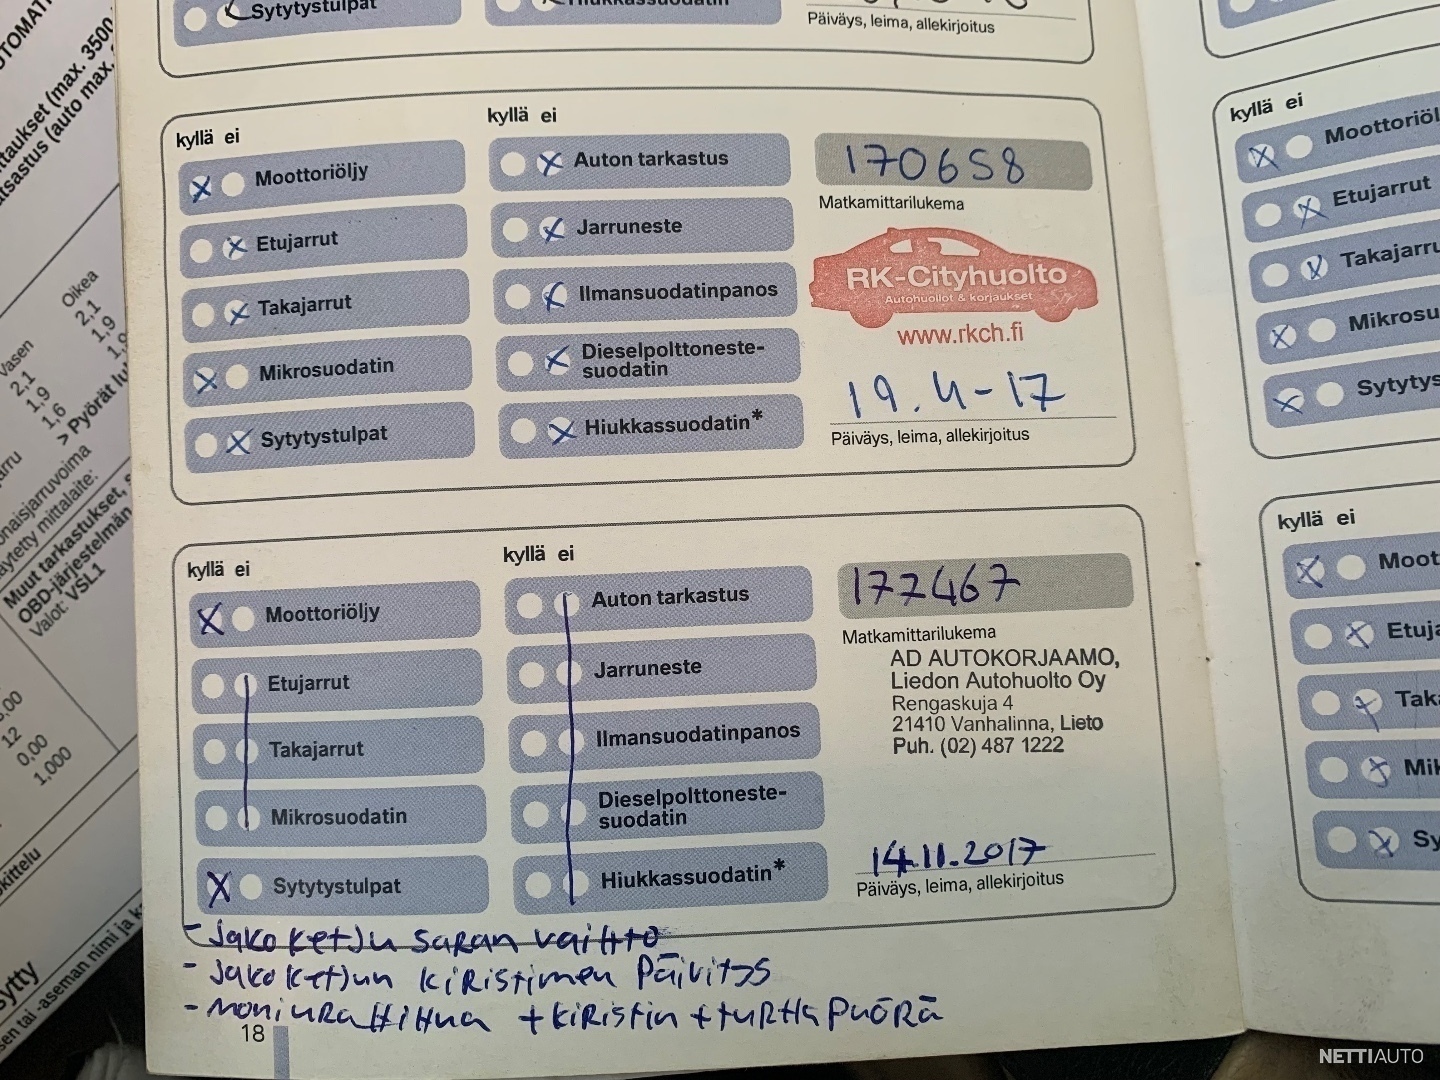 Sytytystulpat
Päiväys, leima, allekirjoitus
kyllä ei
Moottoriöljy
Etujarrut
Takajarrut
Mikrosuodatin
Sytytystulpat
kyllä ei
Auton tarkastus
Jarruneste
Ilmansuodatinpanos
Dieselpolttoneste-
suodatin
Hiukkassuodatin*
170658
Matkamittarilukema
RK-Cityhuolto
Autohuollot & korjaukset
www.rkch.fi
19.4-17
Päiväys, leima, allekirjoitus
kyllä ei
Moottoriöljy
Etujarrut
Takajarrut
Mikrosuodatin
Sytytystulpat
kyllä ei
Auton tarkastus
Jarruneste
Ilmansuodatinpanos
Dieselpolttoneste-
suodatin
Hiukkassuodatin*
177467
Matkamittarilukema
AD AUTOKORJAAMO,
Liedon Autohuolto Oy
Rengaskuja 4
21410 Vanhalinna, Lieto
Puh. (02) 487 1222
14.11.2017
Päiväys, leima, allekirjoitus
- Jakoketju saran vaihto
- Jakoketjun kiristimen päivitys
- moniurahihna + kiristin + turha pyörä
18
kyllä ei
Moottoriöl
Etujarrut
Takajarru
Mikrosu
Sytytys
kyllä ei
Moot
Etuja
Taka
Mik
Sy
Oikea
2,1
1,9
Vasen
2,1
1,9
1,6
> Pyörät lu
Muut tarkastukset,
OBD-järjestelmän
Valot: VSL1
12
0,00
1,000
NETTIAUTO